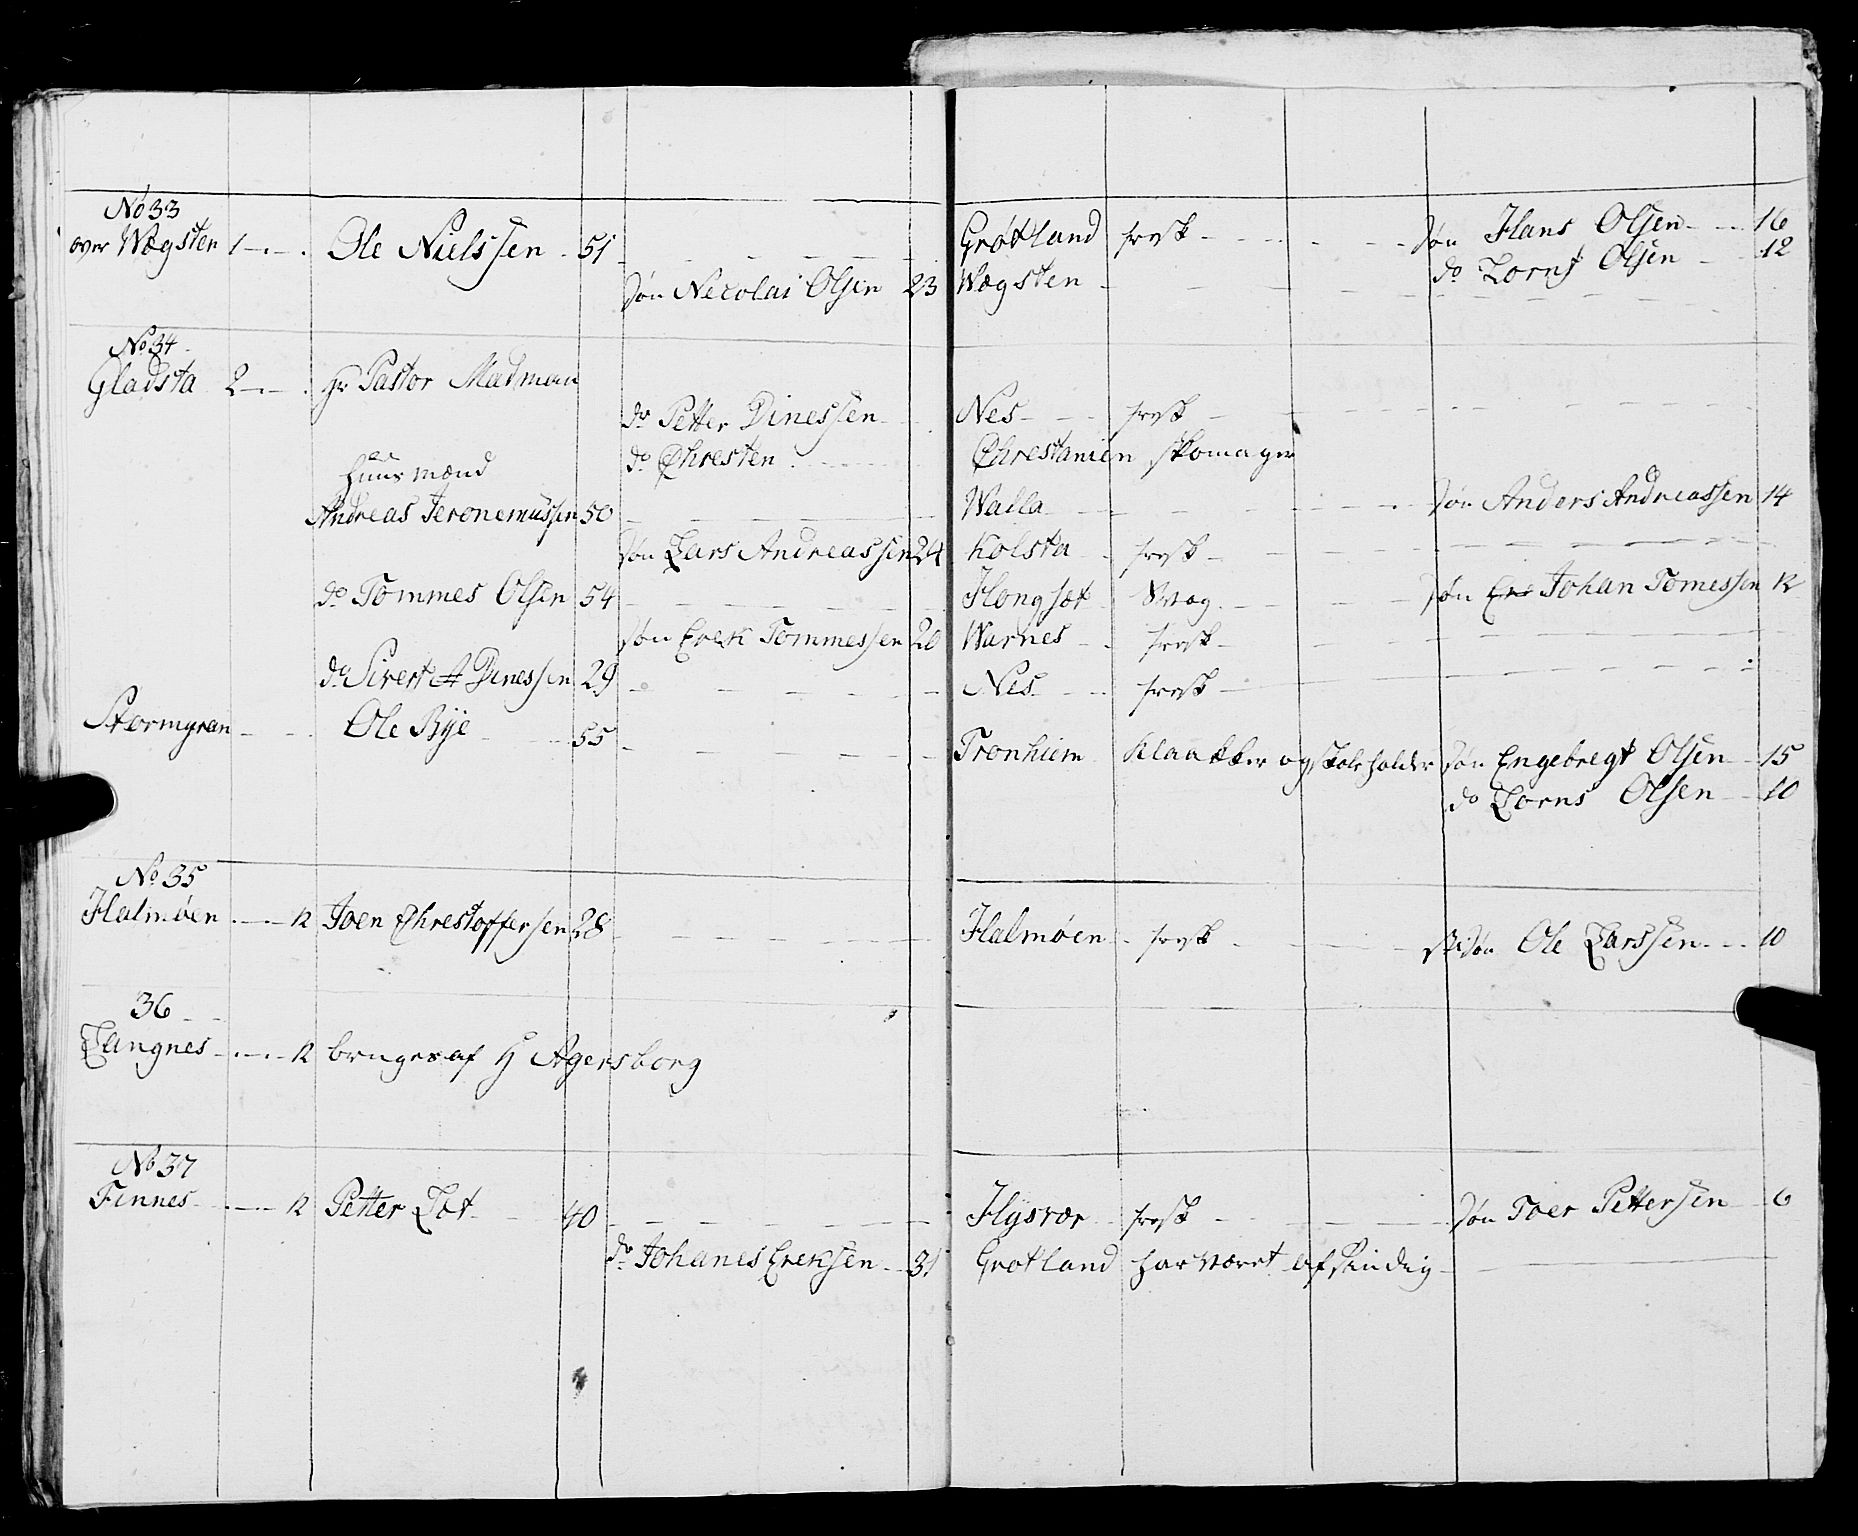 No 33
over Wægsten 1 Ole Nielssen 51 Grøtland fresk Søn Hans Olsen 16
do Lorns Olsen 12
Søn Necolai Olsen 23 Wægsten
No 34
Gladsta 2 Hr Pastor Madman
do Petter Dinessen Nes fresk
do Chresten Chrestanien skomager
Huusmænd
Andreas Jeronemussen 50 Walla Søn Anders Andreassen 14
Søn Lars Andreassen 24 Kolsta fresk
do Tommes Olsen 54 Hongsæt Svag Søn Johan Tomessen 12
Søn Erek Tommessen 20 Warnes fresk
do Sivert Dinessen 29 Nes fresk
Stormyran Ole Bye 55 Tronhiem Klaakker og skoleholder Søn Engebregt Olsen 15
do Lorns Olsen 10
No 35
Halmøen K Joen Chrestoffersen 28 Halmøen fresk Stivsøn Ole Larssen 10
36
Langnes K bruges af H Agersborg
No 37
Finnes K Petter Lot 40 Hysvær fresk Søn Toer Pettersen 6
do Johanes Ereksen 31 Grotland har været afsindig